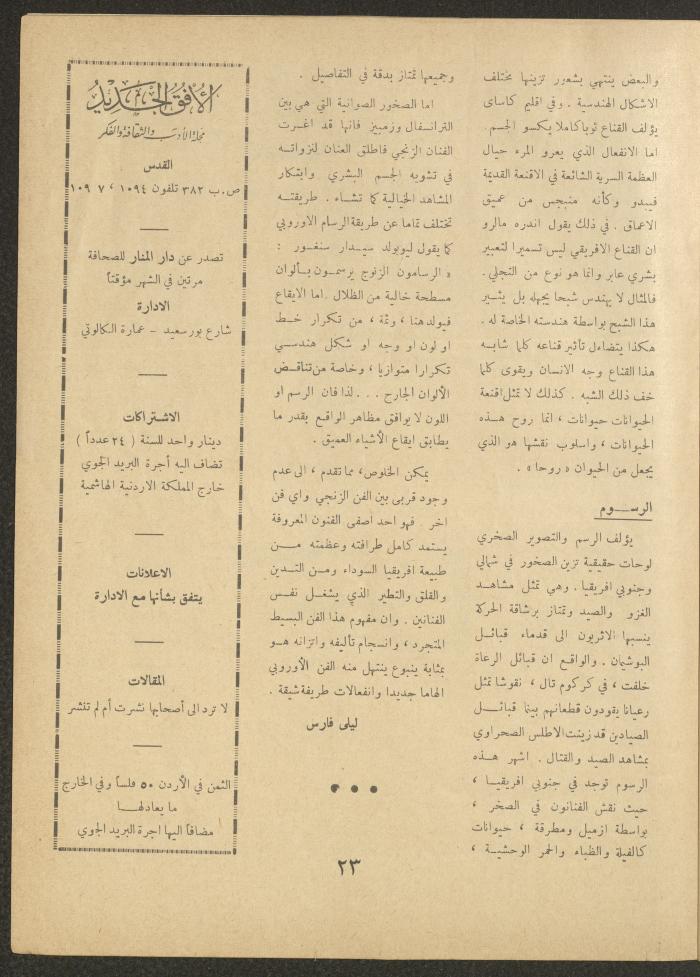 والبعض ينتهي بشعور تزينها مختلف
الاشكال الهندسية . وفي اقليم كاساي
يؤلف القناع ثوبا كاملا يكسو الجسم .
اما الانفعال الذي يعرو المرء حيال
العظمة السرية الشائعة في الاقنعة القديمة
فيبدو وكأنه منبجس من عميق
الاعماق . في ذلك يقول اندره مالرو
ان القناع الافريقي ليس تسميرا لتعبير
بشري عابر وانما هو نوع من التجلي .
فالمثال لا يهندس شبحا يجهله بل يشير
هذا الشبح بواسطة هندسته الخاصة له .
هكذا يتضاءل تأثير قناعه كلما شابه
هذا القناع وجه الانسان ويقوى كلما
خف ذلك الشبه . كذلك لا تمثل اقنعة
الحيوانات حيوانات ، انما روح هذه
الحيوانات ، واسلوب نقشها هو الذي
يجعل من الحيوان « روحا » .
الرسوم
يؤلف الرسم والتصوير الصخري
لوحات حقيقية تزين الصخور في شمالي
وجنوبي افريقيا . وهي تمثل مشاهد
الغزو والصيد وتمتاز برشاقة الحركة
ينسبها الاثريون الى قدماء قبائل
البوشيان . والواقع ان قبائل الرعاة
خلفت ، في كركوم تال ، نقوشا تمثل
رعيانا يقودون قطعانهم بينما قبائل
الصيادين قد زينت الاطلس الصحراوي
بمشاهد الصيد والقتال . اشهر هذه
الرسوم توجد في جنوبي افريقيا ،
حيث نقش الفنانون في الصخر ،
بواسطة ازميل ومطرقة ، حيوانات
كالفيلة والظباء والحمر الوحشية ،
وجميعها تمتاز بدقة في التفاصيل .
اما الصخور الصوانية التي هي بين
الترانسفال وزمبيز فانها قد اغرت
الفنان الزنجي فاطلق العنان لنزواته
في تشويه الجسم البشري وابتكار
المشاهد الخيالية كما تشاء . طريقته
تختلف تماما عن طريقة الرسام الاوروبي
كما يقول ليوبولد سيدار سنغور :
« الرسامون الزنوج يرسمون بألوان
مسطحة خالية من الظلال . اما الايقاع
فيولد هنا ، وثمة ، من تكرار خط
او لون او وجه او شكل هندسي
تكرارا متوازيا ، وخاصة من تناقض
الألوان الجارح . . . لذا فان الرسم او
اللون لا يوافق مظاهر الواقع بقدر ما
يطابق ايقاع الأشياء العميق .
يمكن الخلوص ، مما تقدم ، الى عدم
وجود قربى بين الفن الزنجي واي فن
اخر . فهو احد اصفى الفنون المعروفة
يستمد كامل طرافته وعظمته من
طبيعة افريقيا السوداء ومن التدين
والقلق والتطير الذي يشغل نفس
الفنانين . وان مفهوم هذا الفن البسيط
المتجرد ، وانسجام تأليفه واتزانه هو
بمثابة ينبوع ينتهل منه الفن الأوروبي
الهاما جديدا وانفعالات طريفة شيقة .
ليلى فارس
الأفق الجديد
مجلة الأدب والثقافة والفكر
القدس
ص.ب ٣٨٢ تلفون ١٠٩٤ ، ١٠٩٧
تصدر عن دار المنار للصحافة
مرتين في الشهر مؤقتاً
الادارة
شارع بور سعيد - عمارة الكالوتي
الاشتراكات
دينار واحد للسنة ( ٢٤ عدداً )
تضاف اليه أجرة البريد الجوي
خارج المملكة الاردنية الهاشمية
الاعلانات
يتفق بشأنها مع الادارة
المقالات
لا ترد الى أصحابها نشرت أم لم تنشر
الثمن في الأردن ٥٠ فلساً وفي الخارج
ما يعادلها
مضافاً اليها اجرة البريد الجوي
٢٣